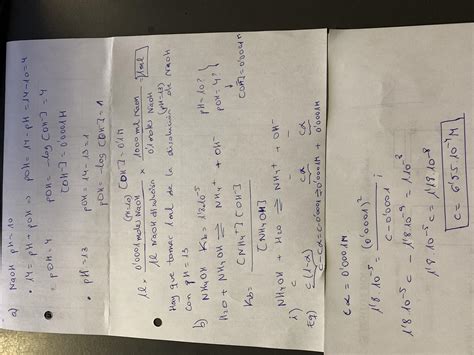 a) NaOH pH=10
• 14 = pH + pOH ⇒ pOH = 14 - pH = 14 - 10 = 4
pOH = 4 pOH = -log [OH⁻] = 4
[OH⁻] = 0'0001M
• pH = 13 pOH = 14 - 13 = 1
pOH = -log [OH⁻] = 1
(pH=10) [OH⁻] = 0'1M
1l × 0'0001 moles NaOH / 1l NaOH disolución × 1000 ml NaOH / 0'1 moles NaOH = 1ml
(pH=13)
Hay que tomar 1 ml de la disolución de NaOH
con pH = 13
b) NH₄OH Kb = 1'8·10⁻⁵ pH = 10?
pOH = 4?
H₂O + NH₄OH ⇌ NH₄⁺ + OH⁻
[OH⁻] = 0'0001M
Kb = [NH₄⁺] [OH⁻] / [NH₄OH]
NH₄OH + H₂O ⇌ NH₄⁺ + OH⁻
i) c - -
Eq) c(1-α) cα cα
c - cα = c - 0'0001 0'0001M + 0'0001M
cα = 0'0001M
1'8·10⁻⁵ = (0'0001)² / c - 0'0001 ;
1'8·10⁻⁵ c - 1'8·10⁻⁹ = 1·10⁻⁸
1'8·10⁻⁵ c = 1'18·10⁻⁸
c = 6'55·10⁻⁴ M